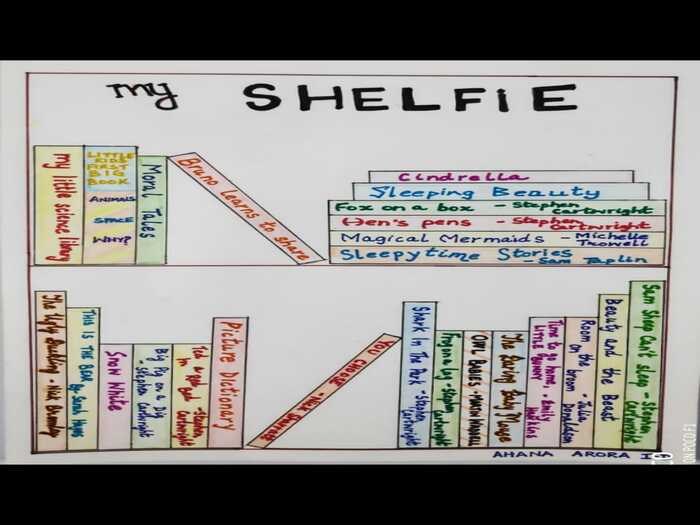 my SHELFiE
my little science library
LITTLE
KIDS
FIRST
BIG
BOOK
ANIMALS
SPACE
WHY?
Moral Tales
Bruno Learns to share
Cindrella
Sleeping Beauty
Fox on a box - Stephen
Cartwright
Hen's pens - Stephen
Cartwright
Magical Mermaids - Michelle
Sleepytime Stories
- Sam Taplin
The Ugly Duckling - Nick
THIS IS THE BEAR
By- Sarah Hayes
Snow White
Big Pig on a Dig
- Stephen Cartwright
Ted
in a Red Bed - Stephen
Cartwright
Picture Dictionary
YOU CHOOSE - Nick Sharratt
Shark In The Park - Stephen
Cartwright
Frog on a Log - Stephen
Cartwright
OWL BABIES - Martin Waddell
The Busy Magee
Time to go home, - Emily
LITTLE BUNNY Hawkins
Room on the broom - Julia
Donaldson
Beauty and the Beast
Sam Sheep Can't sleep - Stephen
Cartwright
AHANA ARORA I
ON POCO F1